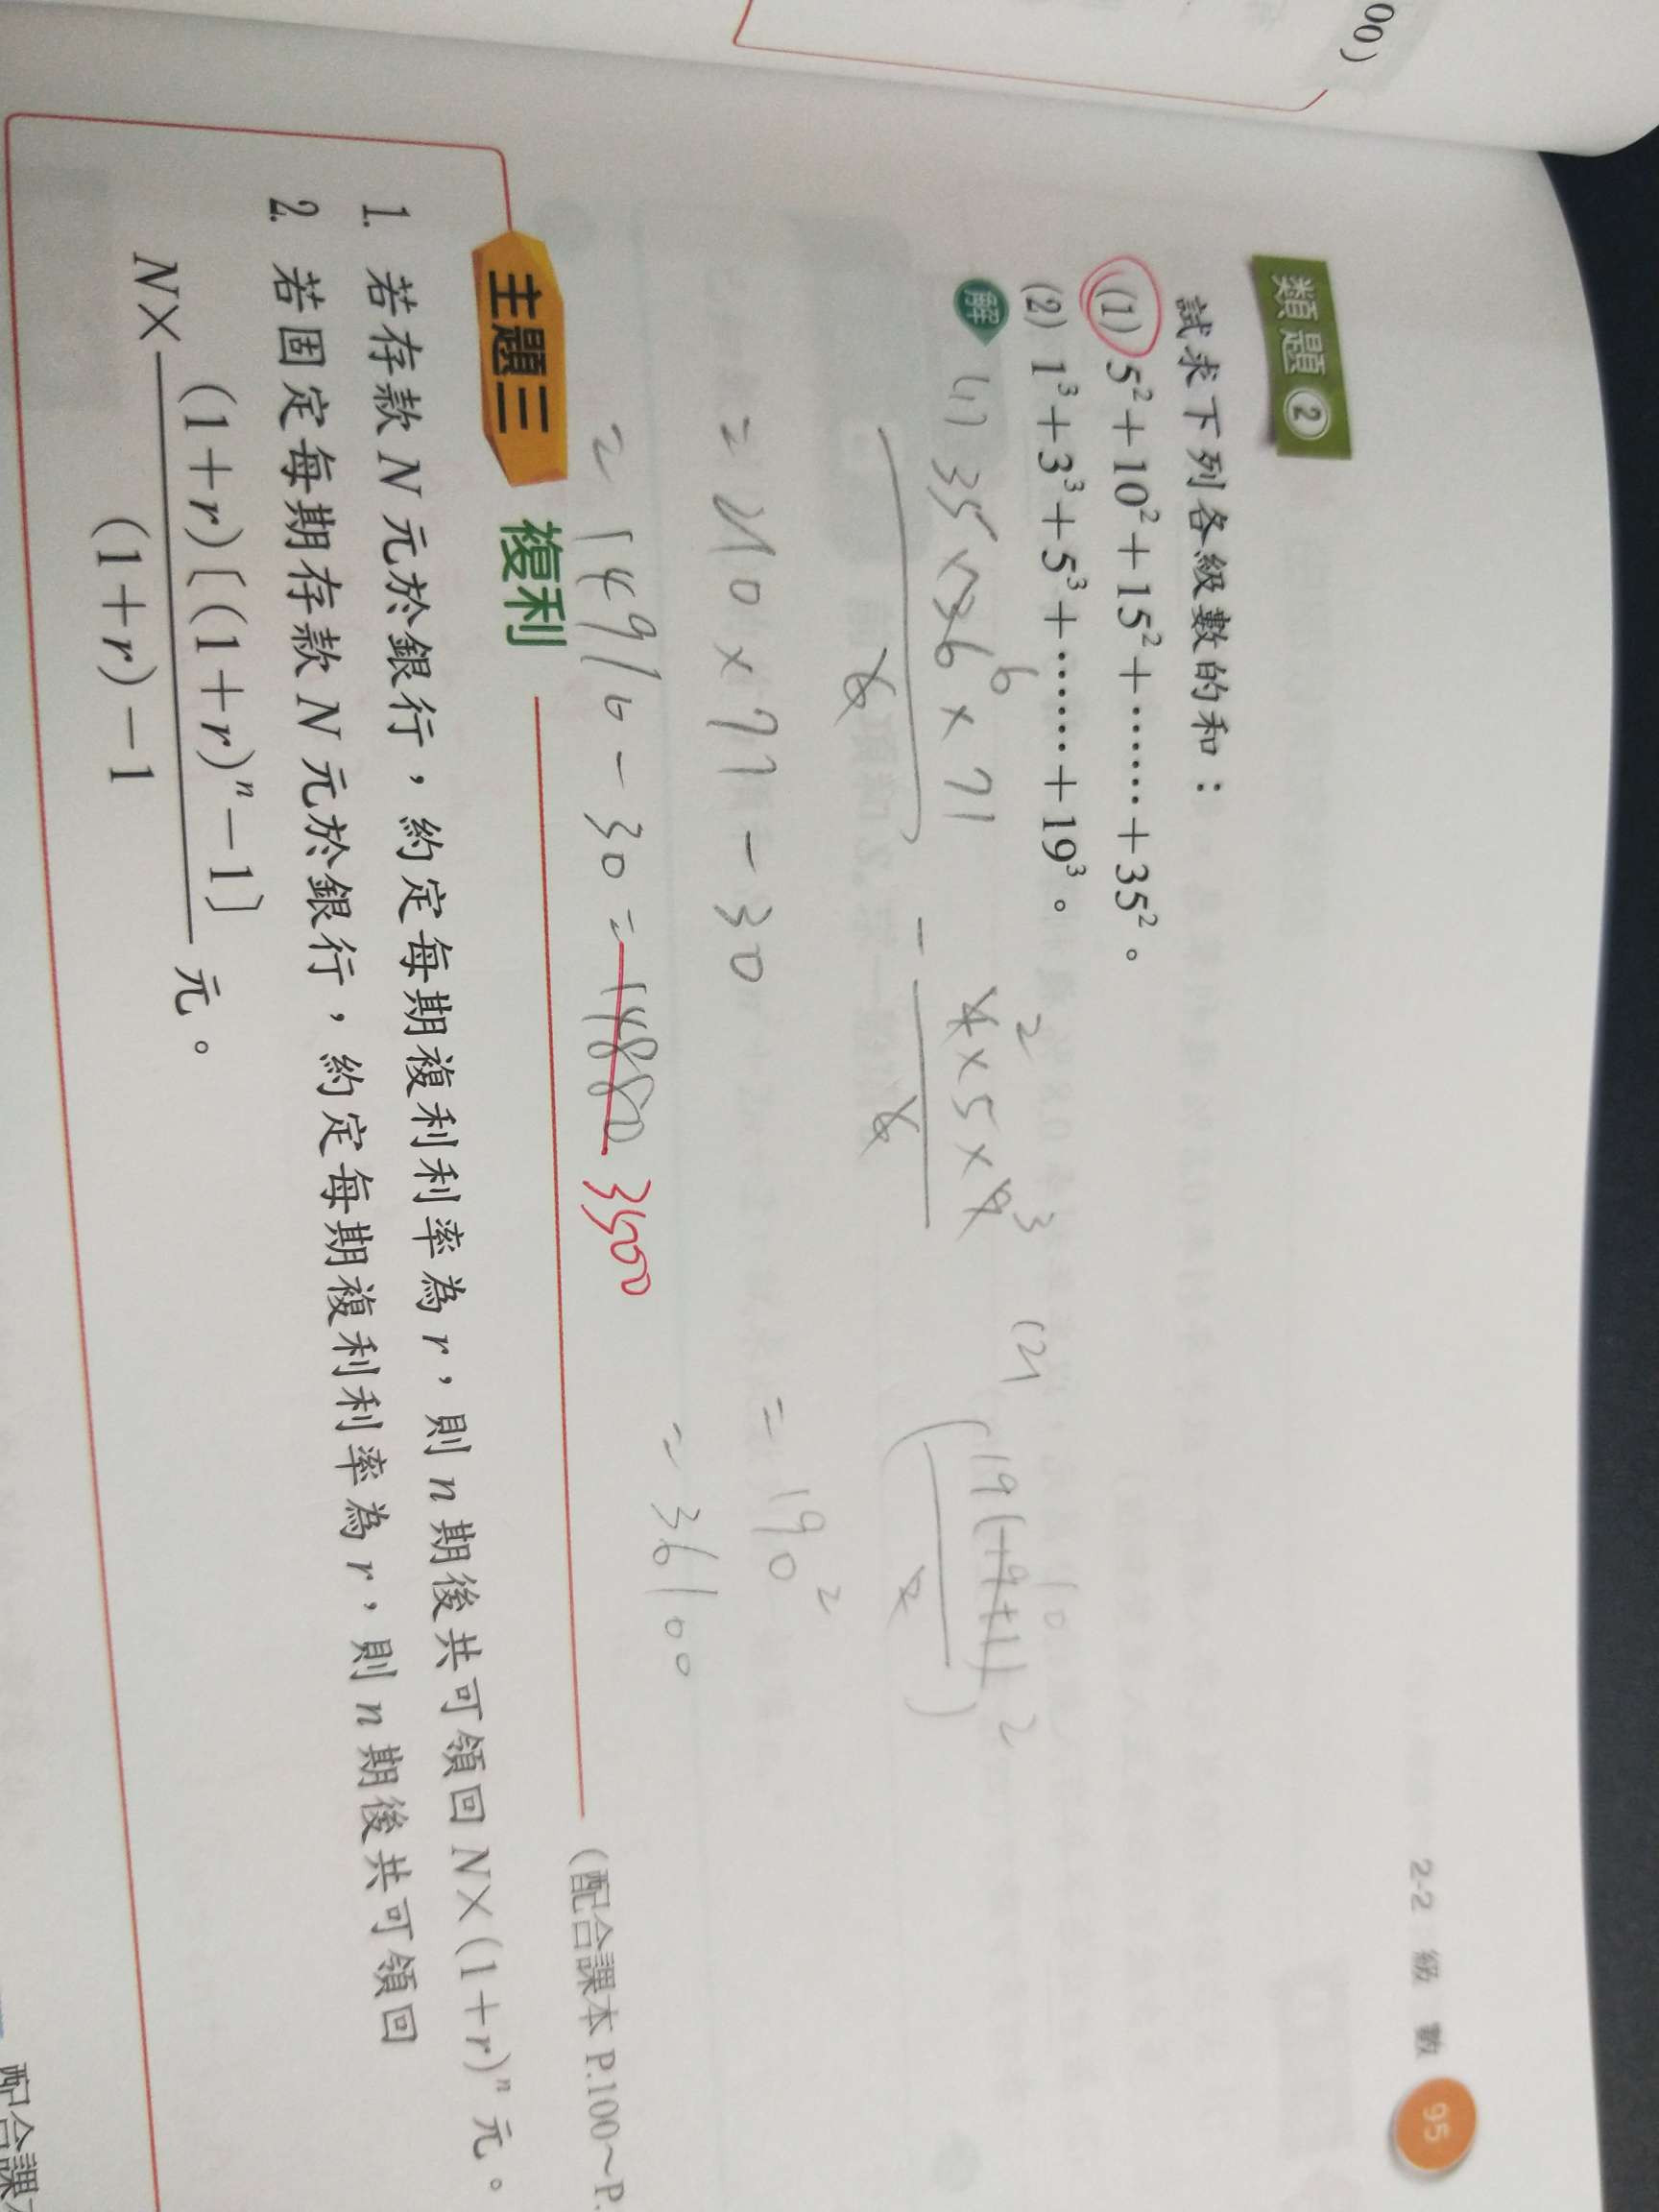 00)
2-2 級 數 95
類題②
試求下列各級數的和：
(1) 5²+10²+15²+……+35²。
(2) 1³+3³+5³+……+19³。
解
(1) 35×36⁶×71
6
－
4²×5×9³
6
=210×71－30
=14910－30=14880 3500
(2) (19(19+1) 10
2
)²
=190²
=36100
主題三 複利 (配合課本 P.100～P.
1. 若存款 N 元於銀行，約定每期複利利率為 r，則 n 期後共可領回 N×(1+r)ⁿ 元。
2. 若固定每期存款 N 元於銀行，約定每期複利利率為 r，則 n 期後共可領回
N× (1+r)〔(1+r)ⁿ－1〕
(1+r)－1
元。
配合課